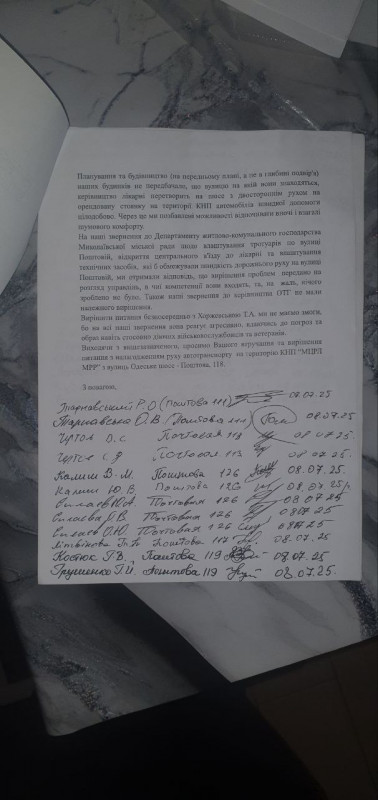 Планування та будівництво (на передньому плані, а не в глибині подвір'я)
наших будинків не передбачало, що вулицю на якій вони знаходяться,
керівництво лікарні перетворить на шосе з двостороннім рухом на
орендовану стоянку на території КНП автомобілів швидкої допомоги
цілодобово. Через це ми позбавлені можливості відпочивати вночі і взагалі
шумового комфорту.
На наші звернення до Департаменту житлово-комунального господарства
Миколаївської міської ради щодо влаштування тротуарів по вулиці
Поштовій, відкриття центрального в'їзду до лікарні та влаштування
технічних засобів, які б обмежували швидкість дорожнього руху на вулиці
Поштовій, ми отримали відповідь, що вирішення проблем передано на
розгляд управлінь, в чиї компетенції вони входять, та, на жаль, нічого
зроблено не було. Також наші звернення до керівництва ОТГ не мали
належного вирішення.
Вирішити питання безпосередньо з Хоржевською Т.А. ми не маємо змоги,
бо на всі наші звернення вона реагує агресивно, вдаючись до погроз та
образ навіть стосовно діючих військовослужбовців та ветеранів.
Виходячи з вищезазначеного, просимо Вашого втручання та вирішення
питання з налагодженням руху автотранспорту на територію КНП "МЦРЛ
МРР" з вулиць Одеське шосе - Поштова, 118.
З повагою,
Тарнавський Р.О (Поштова 111) 08.07.25
О.В (Поштова 111) 08.07.25
О.С. Почтовая 113 08.07.25
С.Я Почтовая 113 08.07.25
Калиш В.М. Поштова 126 08.07.25
Калиш Ю.В. Поштова 126 08.07.25
Ю.А. Почтовая 126 08.07.25
О.В. Почтовая 126 08.07.25
О.Ю. Почтовая 126 08.07.25
Літвінова Поштова 117 08.07.25
Костюк Г.В, Поштова 119 08.07.25
Грушенко Г.И, Поштова 119 08.07.25.